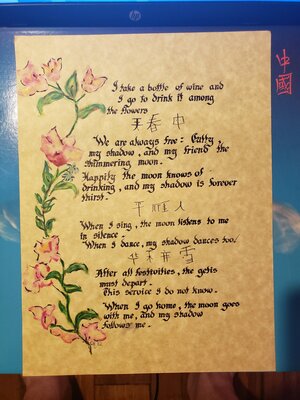 hp
中國
I take a bottle of wine and
I go to drink it among
the flowers
王春中
We are always free - Cutty,
my shadow, and my friend the
shimmering moon.
Happily the moon knows of
drinking, and my shadow is forever
thirst.
平雕人
When I sing, the moon listens to me
in silence.
When I dance, my shadow dances too!
After all festivities, the gets
must depart.
This service I do not know.
When I go home, the moon goes
with me, and my shadow
follows me.